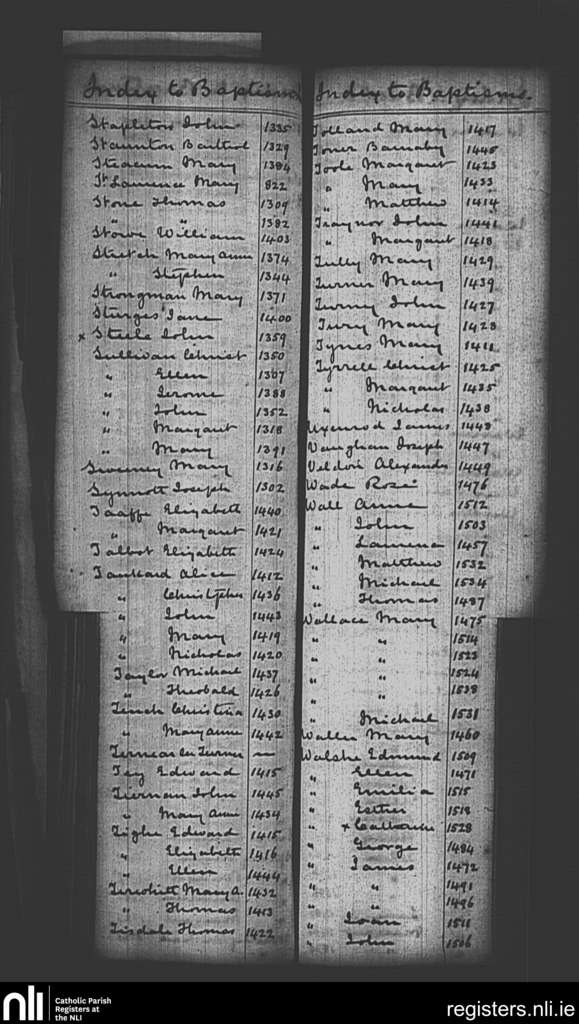 Index to Baptisms
Stapleton John 1335
Staunton 1329
Mary 1384
St. Laurence Mary 822
Stone Thomas 1309
" " 1382
Stowe William 1403
Stretch Mary Anne 1374
" Stephen 1344
Strongman Mary 1371
Sturges Jane 1400
x Steele John 1359
Sullivan Christ 1350
" Ellen 1307
" Jerome 1388
" John 1352
" Margaret 1318
" Mary 1391
Sweeney Mary 1316
Synnott Joseph 1302
Taaffe Elizabeth 1440
" Margaret 1421
Talbot Elizabeth 1424
Tankard Alice 1412
" Christopher 1436
" John 1443
" Mary 1419
" Nicholas 1420
Taylor Michael 1437
" Theobald 1426
Tench Christina 1430
" Mary Anne 1442
Turner —
Tey Edward 1415
Tiernan John 1445
" Mary Anne 1434
Tighe Edward 1415
" Elizabeth 1416
" Ellen 1444
Mary A. 1432
" Thomas 1413
Tisdale Thomas 1422
Index to Baptisms.
Tolland Mary 1417
Toner Barnaby 1445
Toole Margaret 1423
" Mary 1433
" Matthew 1414
Traynor John 1441
" Margaret 1418
Tully Mary 1429
Turner Mary 1439
John 1427
Mary 1428
Tynes Mary 1411
Tyrrell Christ 1425
" Margaret 1435
" Nicholas 1438
James 1448
Vaughan Joseph 1447
Veldon Alexander 1449
Wade Rose 1476
Wall Anne 1512
" John 1503
" Laurence 1457
" Matthew 1532
" Michael 1534
" Thomas 1487
Wallace Mary 1475
" " 1514
" " 1523
" " 1524
" " 1538
" Michael 1531
Waller Mary 1460
Walshe Edmund 1509
" Ellen 1471
" Emilia 1515
" Esther 1518
" x Catherine 1528
" George 1484
" James 1472
" " 1491
" " 1496
" Joan 1511
" John 1506
nli Catholic Parish
Registers at
the NLI
registers.nli.ie